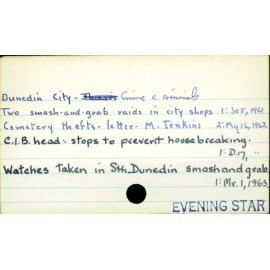 Dunedin City - Thieves Crime & criminals
Two smash-and-grab raids in city shops 1: Se 5, 1961
Cemetery thefts - letter - M. Jenkins 2: My 16, 1962
C.I.B. head: stops to prevent housebreaking.
1: D. 17, "
Watches taken in Sth. Dunedin smash and grab
1: Mr. 1, 1963
EVENING STAR